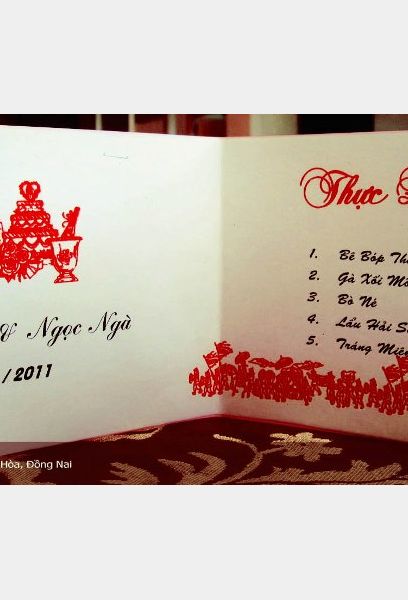 & Ngọc Ngà
/ 2011
Thực
1. Bê Bóp Th
2. Gà Xối M
3. Bò Né
4. Lẩu Hải S
5. Tráng Miệ
Hòa, Đồng Nai